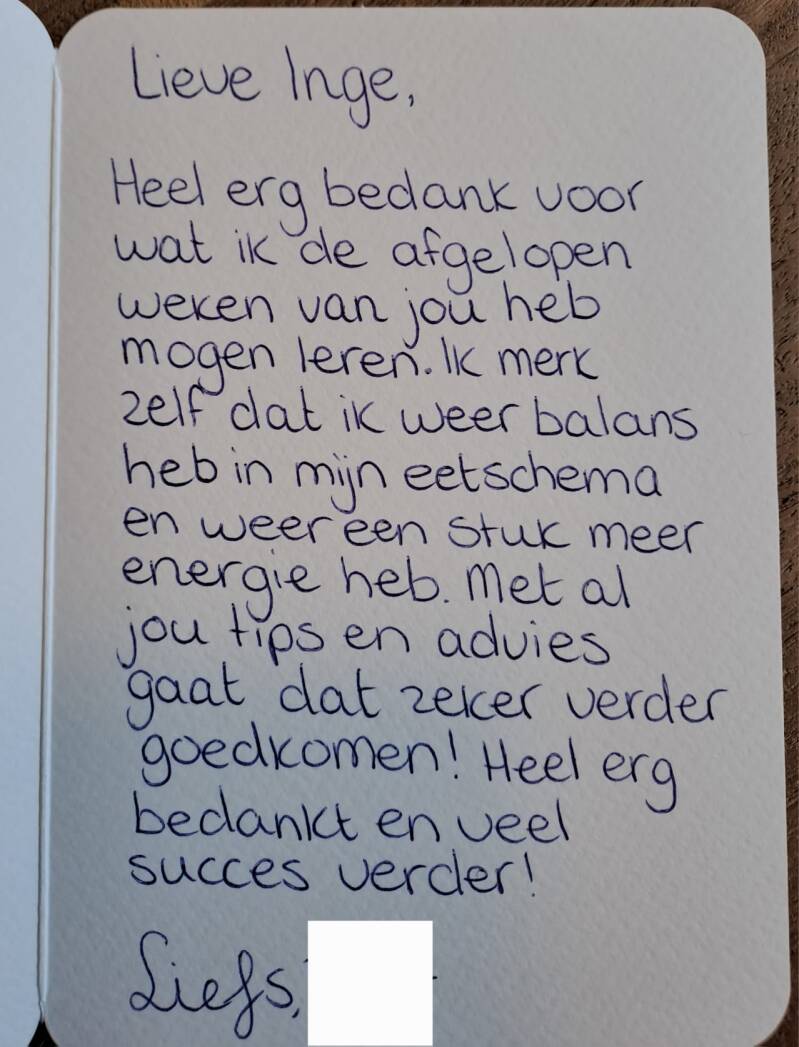 Lieve Inge,
Heel erg bedank voor
wat ik de afgelopen
weken van jou heb
mogen leren. Ik merk
zelf dat ik weer balans
heb in mijn eetschema
en weer een stuk meer
energie heb. Met al
jou tips en advies
gaat dat zeker verder
goedkomen! Heel erg
bedankt en veel
succes verder!
Liefs,